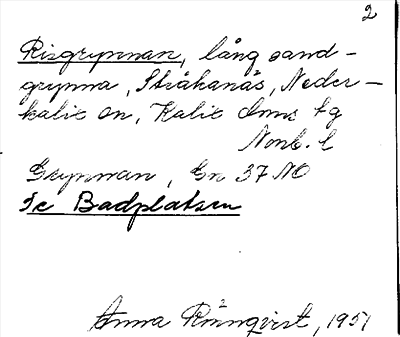 2
Risgrynnan, lång sand-
grynna, Stråkanäs, Neder-
kalix sn, Kalix dms tg
Norrb. l
Grynnan, Gn 37 NO
Se Badplatsen
Anna Rönnqvist, 1951